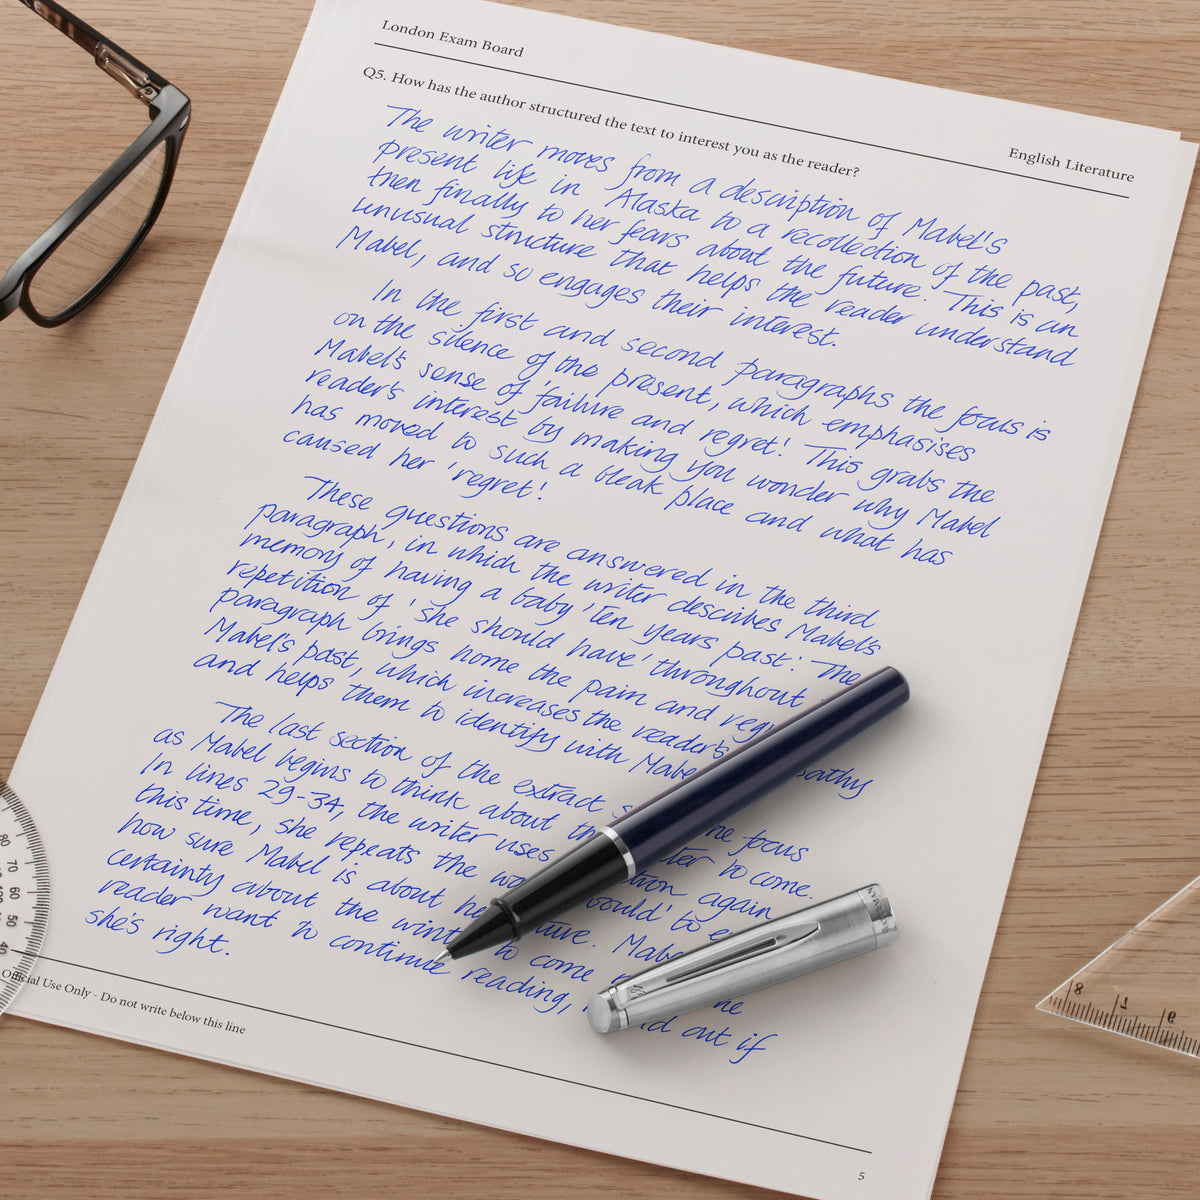 London Exam Board
English Literature
Q5. How has the author structured the text to interest you as the reader?
The writer moves from a description of Mabel's
present life in Alaska to a recollection of the past,
then finally to her fears about the future. This is an
unusual structure that helps the reader understand
Mabel, and so engages their interest.
In the first and second paragraphs the focus is
on the silence of the present, which emphasises
Mabel's sense of 'failure and regret! This grabs the
reader's interest by making you wonder why Mabel
has moved to such a bleak place and what has
caused her 'regret'!
These questions are answered in the third
paragraph, in which the writer describes Mabel's
memory of having a baby 'Ten years past'. The
repetition of 'she should have' throughout
paragraph brings home the pain and
Mabel's past, which increases the reader's
and helps them to identify with
The last section of the extract focus
as Mabel begins to think about to come.
In lines 29-34, the writer uses again
this time, she repeats the would' to
how sure Mabel is about
certainty about the to come
reader want to continue reading, out if
she's right.
Official Use Only - Do not write below this line
5
80
70
60
50
40
8
7
6